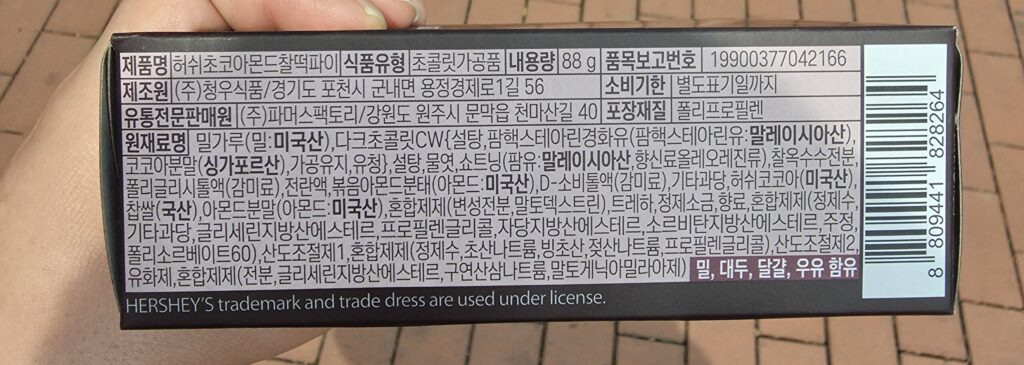 제품명 허쉬초코아몬드찰떡파이 식품유형 초콜릿가공품 내용량 88 g 품목보고번호 19900377042166
제조원 (주)청우식품/경기도 포천시 군내면 용정경제로1길 56 소비기한 별도표기일까지
유통전문판매원 (주)파머스팩토리/강원도 원주시 문막읍 천마산길 40 포장재질 폴리프로필렌
원재료명 밀가루(밀:미국산),다크초콜릿CW{설탕,팜핵스테아린경화유(팜핵스테아린유:말레이시아산),
코코아분말(싱가포르산),가공유지,유청},설탕,물엿,쇼트닝(팜유:말레이시아산,향신료올레오레진류),찰옥수수전분,
폴리글리시톨액(감미료),전란액,볶음아몬드분태(아몬드:미국산),D-소비톨액(감미료),기타과당,허쉬코코아(미국산),
찹쌀(국산),아몬드분말(아몬드:미국산),혼합제제(변성전분,말토덱스트린),트레하,정제소금,향료,혼합제제(정제수,
기타과당,글리세린지방산에스테르,프로필렌글리콜,자당지방산에스테르,소르비탄지방산에스테르,주정,
폴리소르베이트60),산도조절제1,혼합제제(정제수,초산나트륨,빙초산,젖산나트륨,프로필렌글리콜),산도조절제2,
유화제,혼합제제(전분,글리세린지방산에스테르,구연산삼나트륨,말토게닉아밀라아제) 밀, 대두, 달걀, 우유 함유
HERSHEY'S trademark and trade dress are used under license.
8 809441 828264